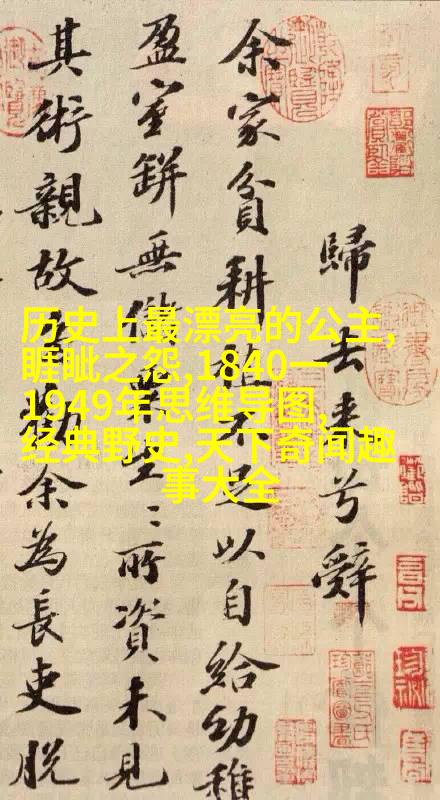 历史上最漂亮的公主,
睚眦之怨,1840一
1949年思维导图,
经典野史,天下奇闻趣
事大全
歸去来兮辭
余家貧耕植不足以自給幼稚
盈室缾無儲粟生〻所資未見
其術親故多勸余為長吏脫